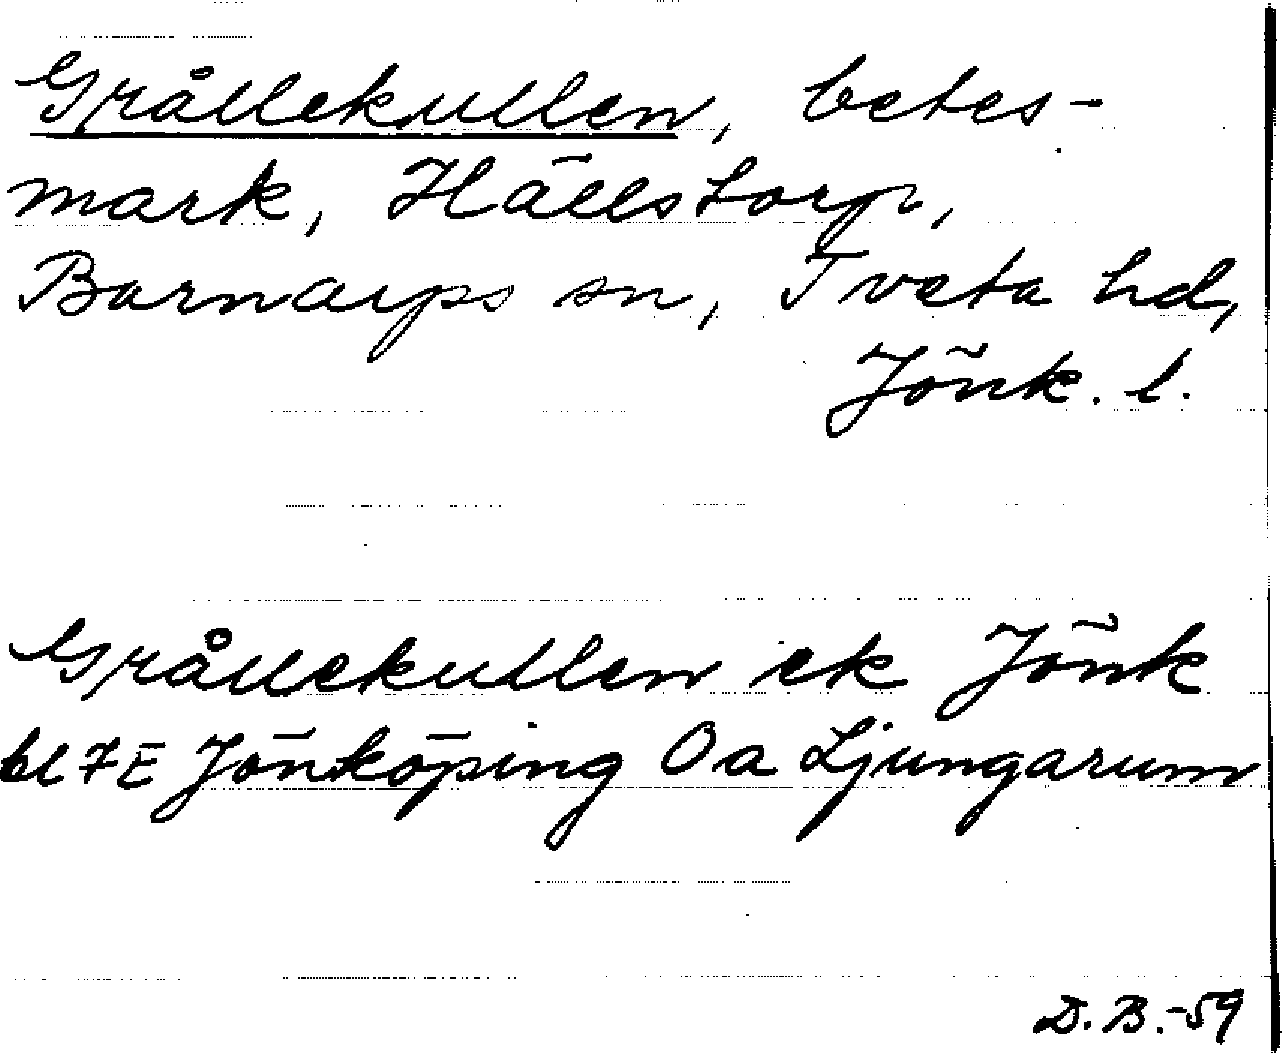 Grållekullen, betes-
mark, Hällstorp,
Barnarps sn, Tveta hd,
Jönk. l.
Grållekullen ek Jönk
bl 7E Jönköping Oa Ljungarum
D.B.-59